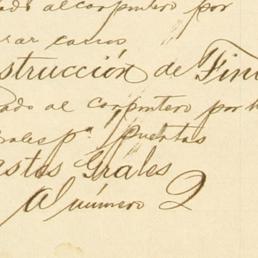 al carpintero por
rar carros
strucción de Fin
ado al carpintero por
rales pª puertas
astos Grales
al número 2